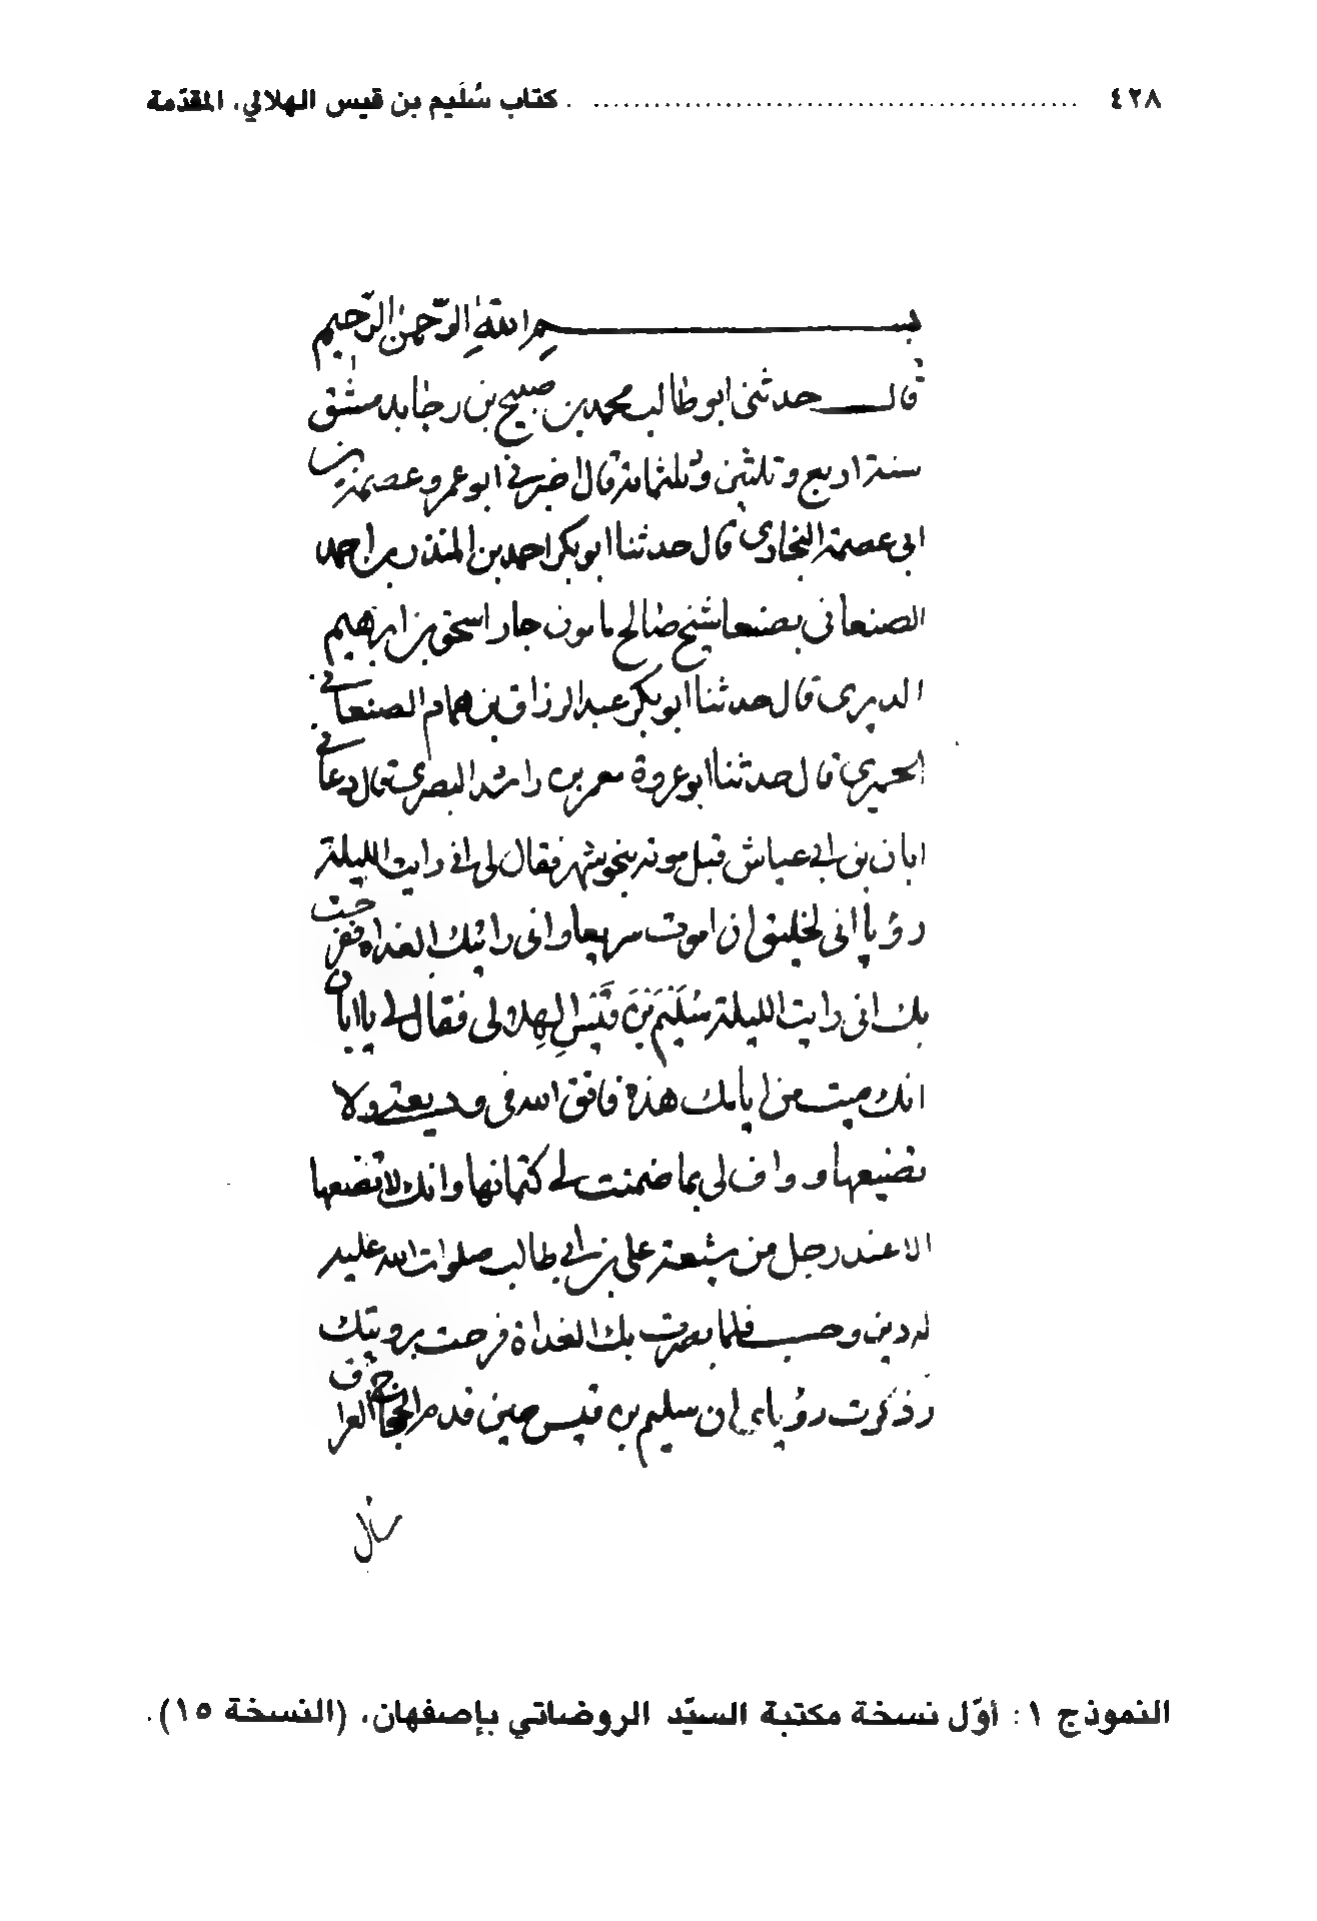 ٤٢٨ ................................................ كتاب سُلَيم بن قيس الهلالي، المقدّمة
بسم الله الرّحمن الرّحيم
قال حدثنى ابو طالب محمد بن صبيح بن رجا بدمشق
سنة اربع وثلثين وثلثمائة قال اخبرنى ابو عمرو عصمة بن
ابى عصمة البخارى قال حدثنا ابو بكر احمد بن المنذر بن احمد
الصنعانى بصنعا شيخ صالح مامون جار اسحق بن ابرهيم
الدبرى قال حدثنا ابو بكر عبد الرزاق بن همام الصنعانى
الحميرى قال حدثنا ابو عروة معمر بن راشد البصرى قال دعانى
ابان بن ابى عياش قبل موته بنحو شهر فقال لى انى رايت الليلة
رؤيا انى لخليق ان اموت سريعا وانى رايتك الغداة ففرحت
بك انى رايت الليلة سُلَيْم بْنَ قَيْس الهِلالى فقال لى يا ابان
انك ميت من ايامك هذه فاتق الله فى وديعتى ولا
تضيعها وواف لى بما ضمنت لى كتمانها وانك لا تضعها
الا عند رجل من شيعة على بن ابى طالب صلوات الله عليه
له دين وحسب فلما بصرت بك الغداة فرحت برويتك
وذكرت رؤياى ان سليم بن قيس حين قدم الحجاج العراق
سال
النموذج ١ : أوّل نسخة مكتبة السيّد الروضاتي بإصفهان، (النسخة ١٥).